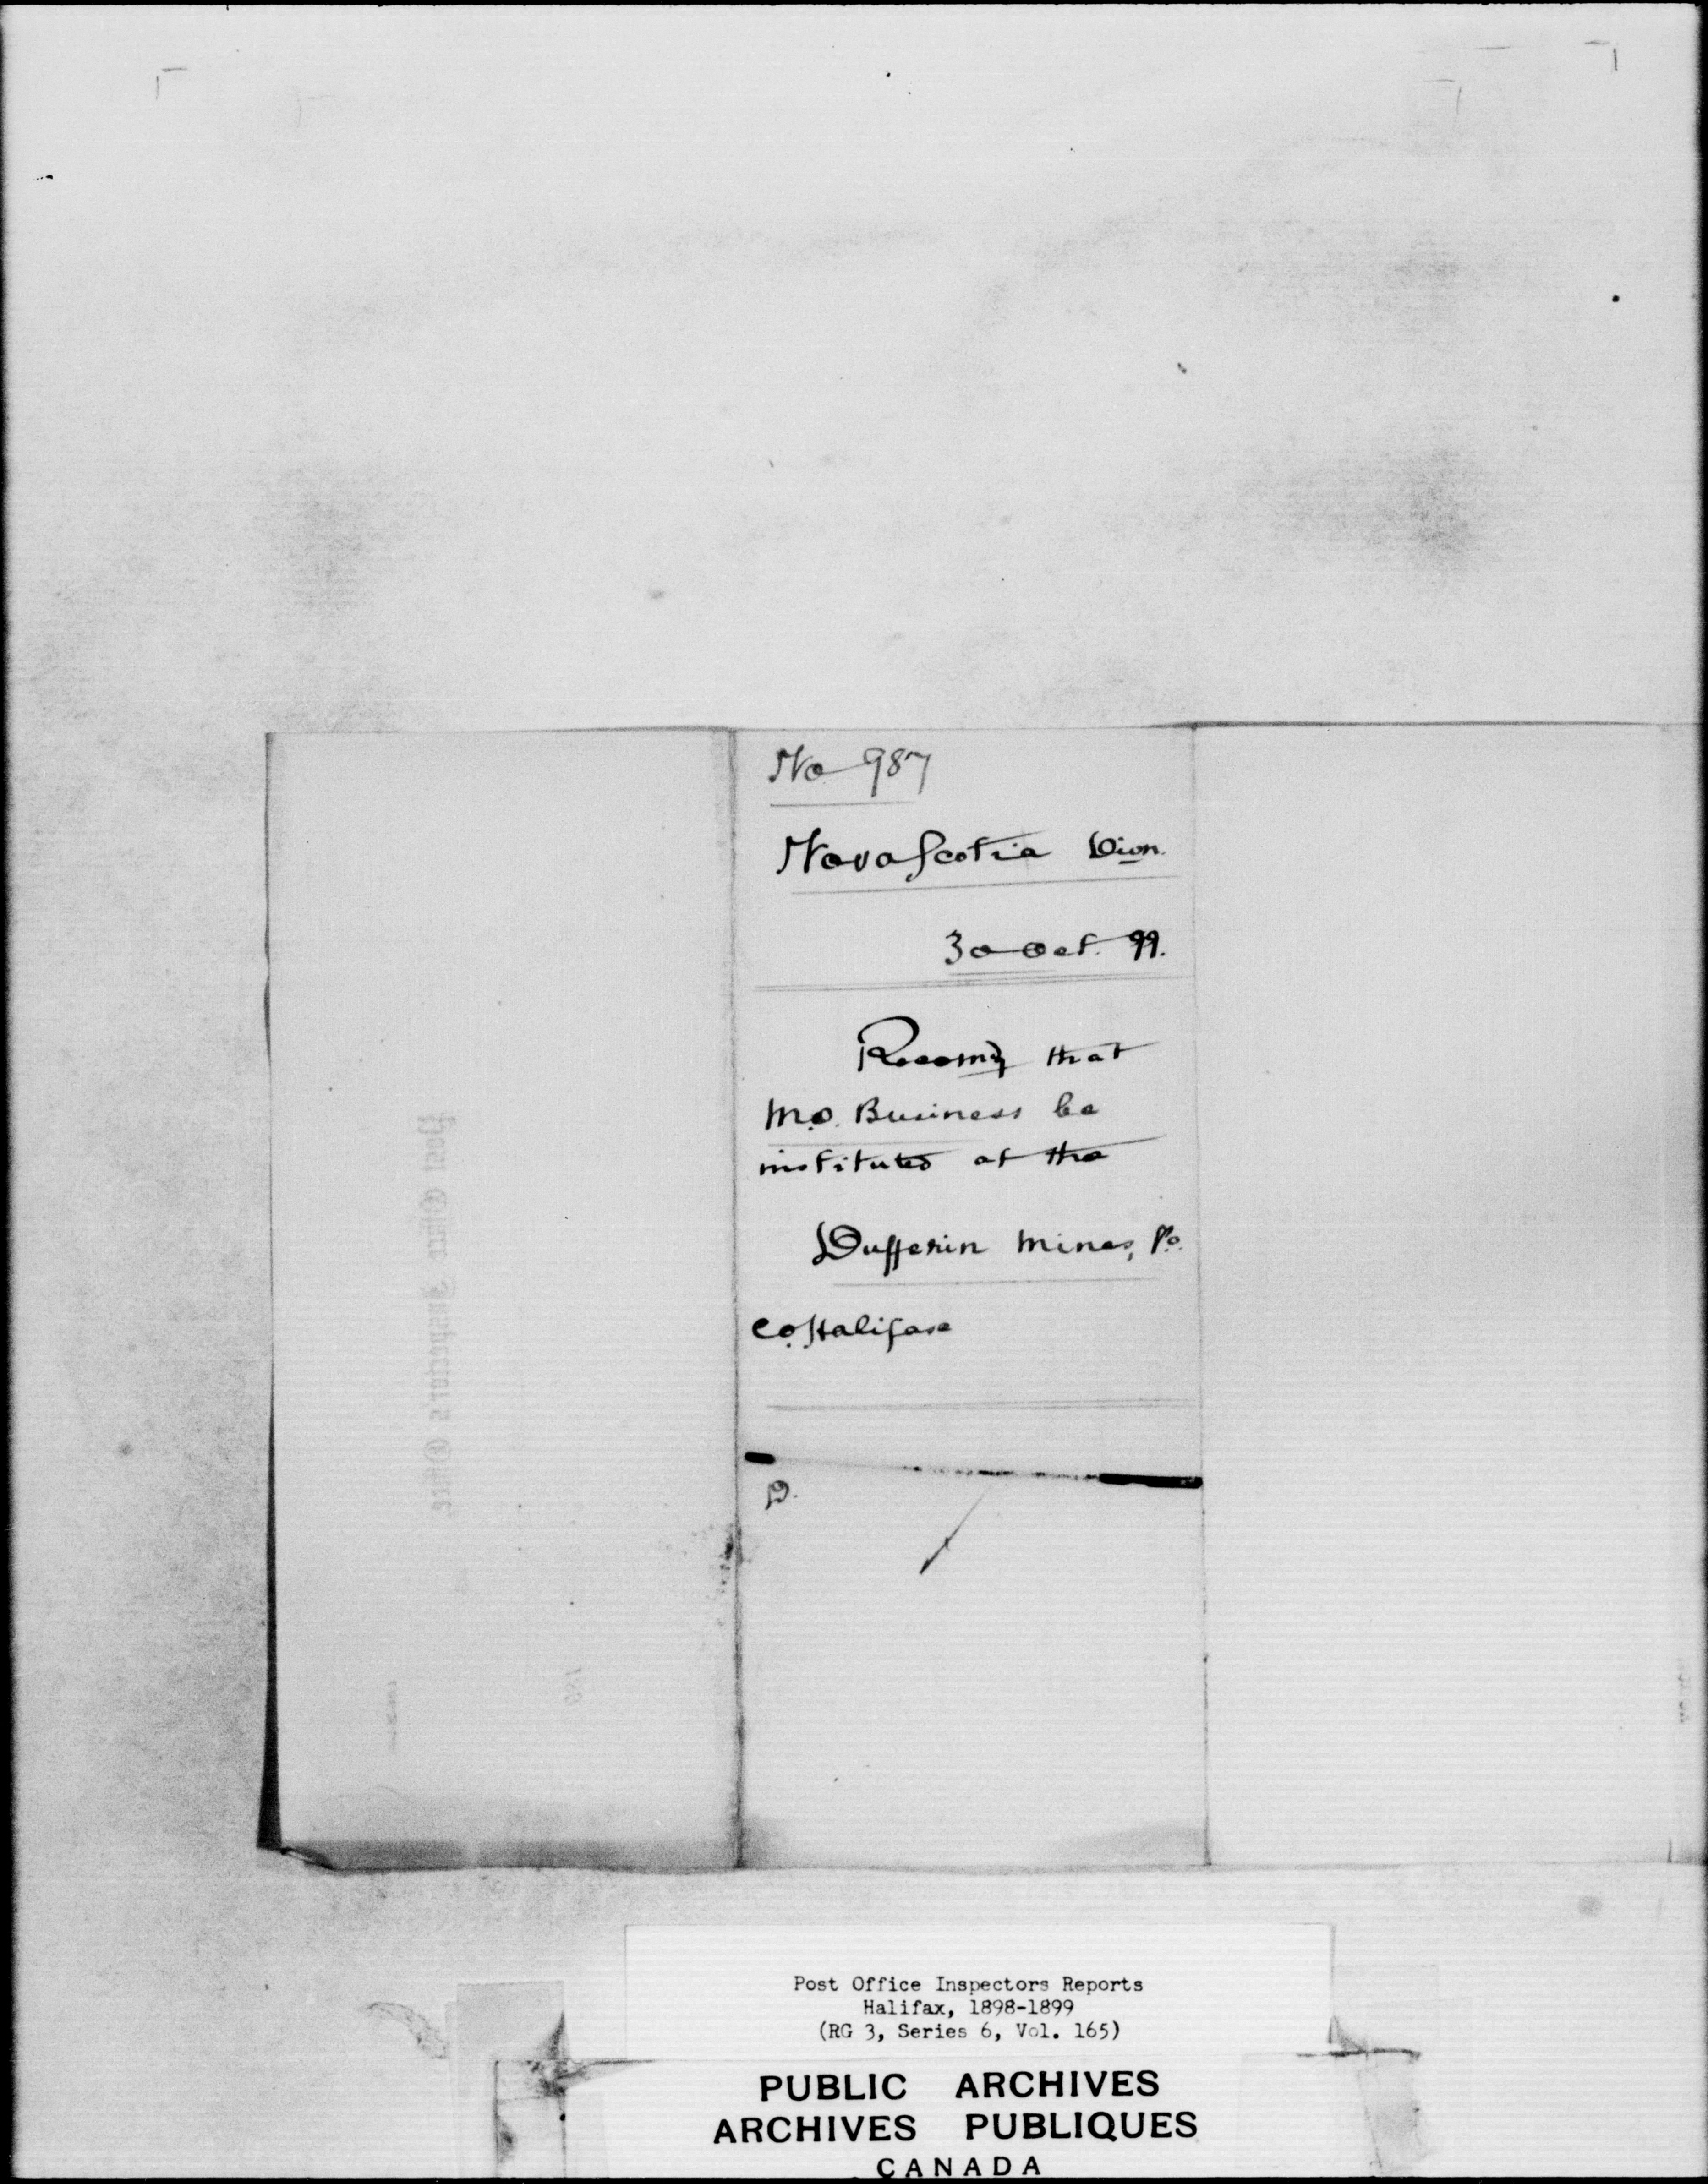 No 987
Nova Scotia Divn.
30 Oct. 99.
Recomg that
M.O. Business be
instituted at the
Dufferin Mines, P.O.
Co. Halifax
D.
Post Office Inspector's Office
189
Post Office Inspectors Reports
Halifax, 1898-1899
(RG 3, Series 6, Vol. 165)
PUBLIC ARCHIVES
ARCHIVES PUBLIQUES
CANADA